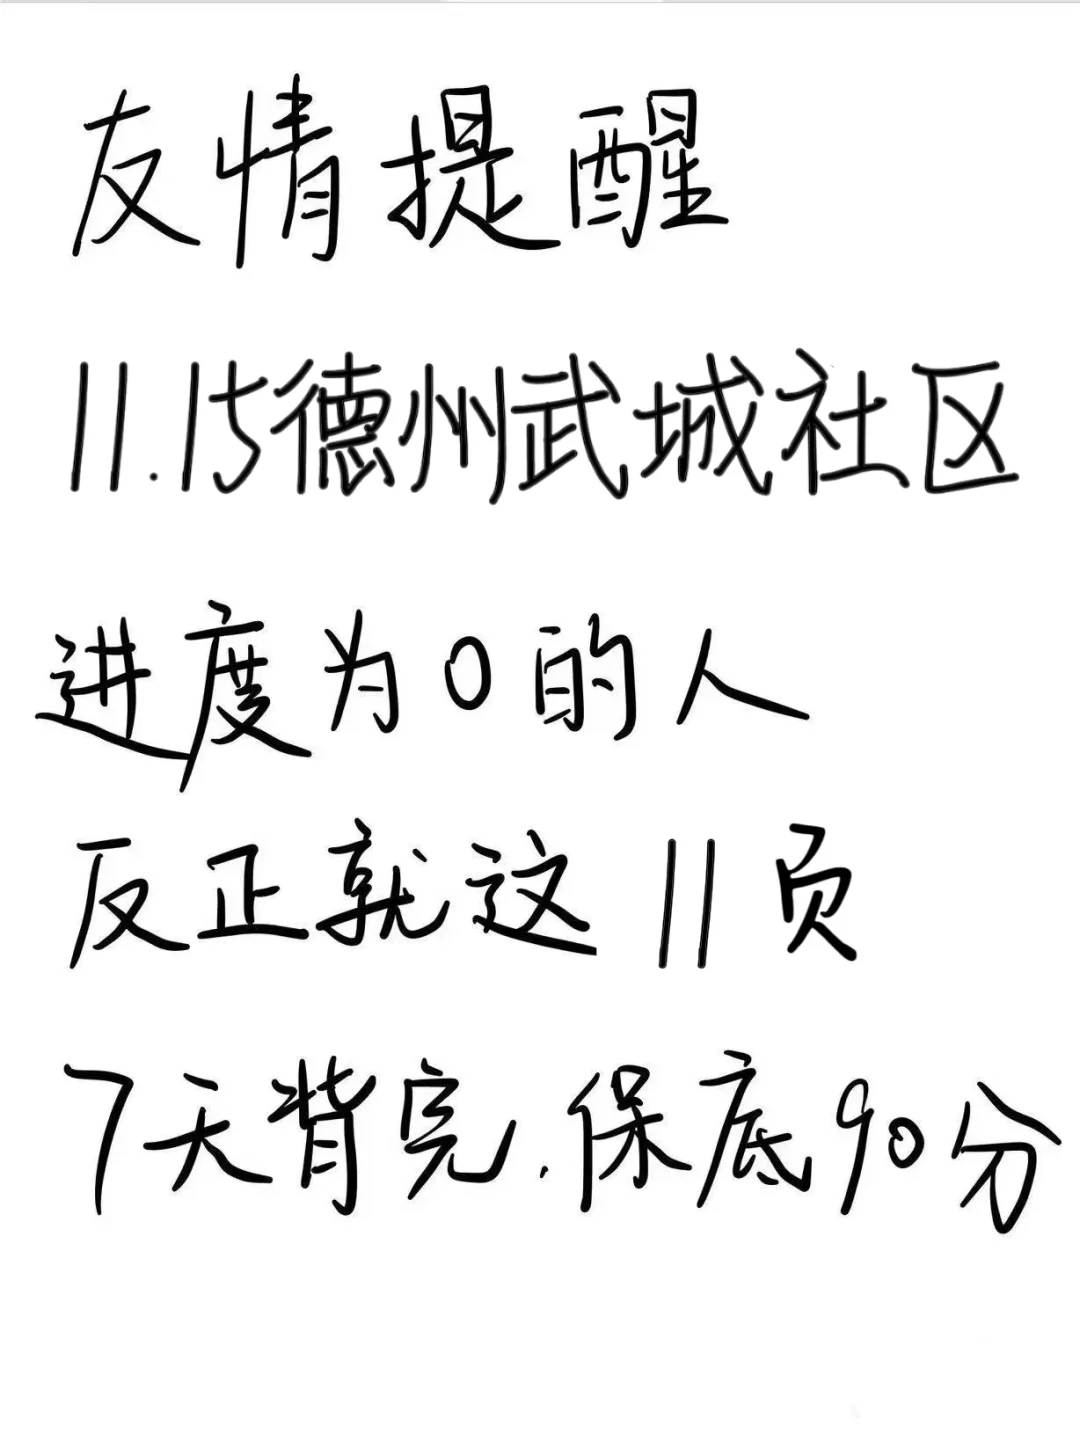 友情提醒
11.15德州武城社区
进度为0的人
反正就这11页
7天背完.保底90分